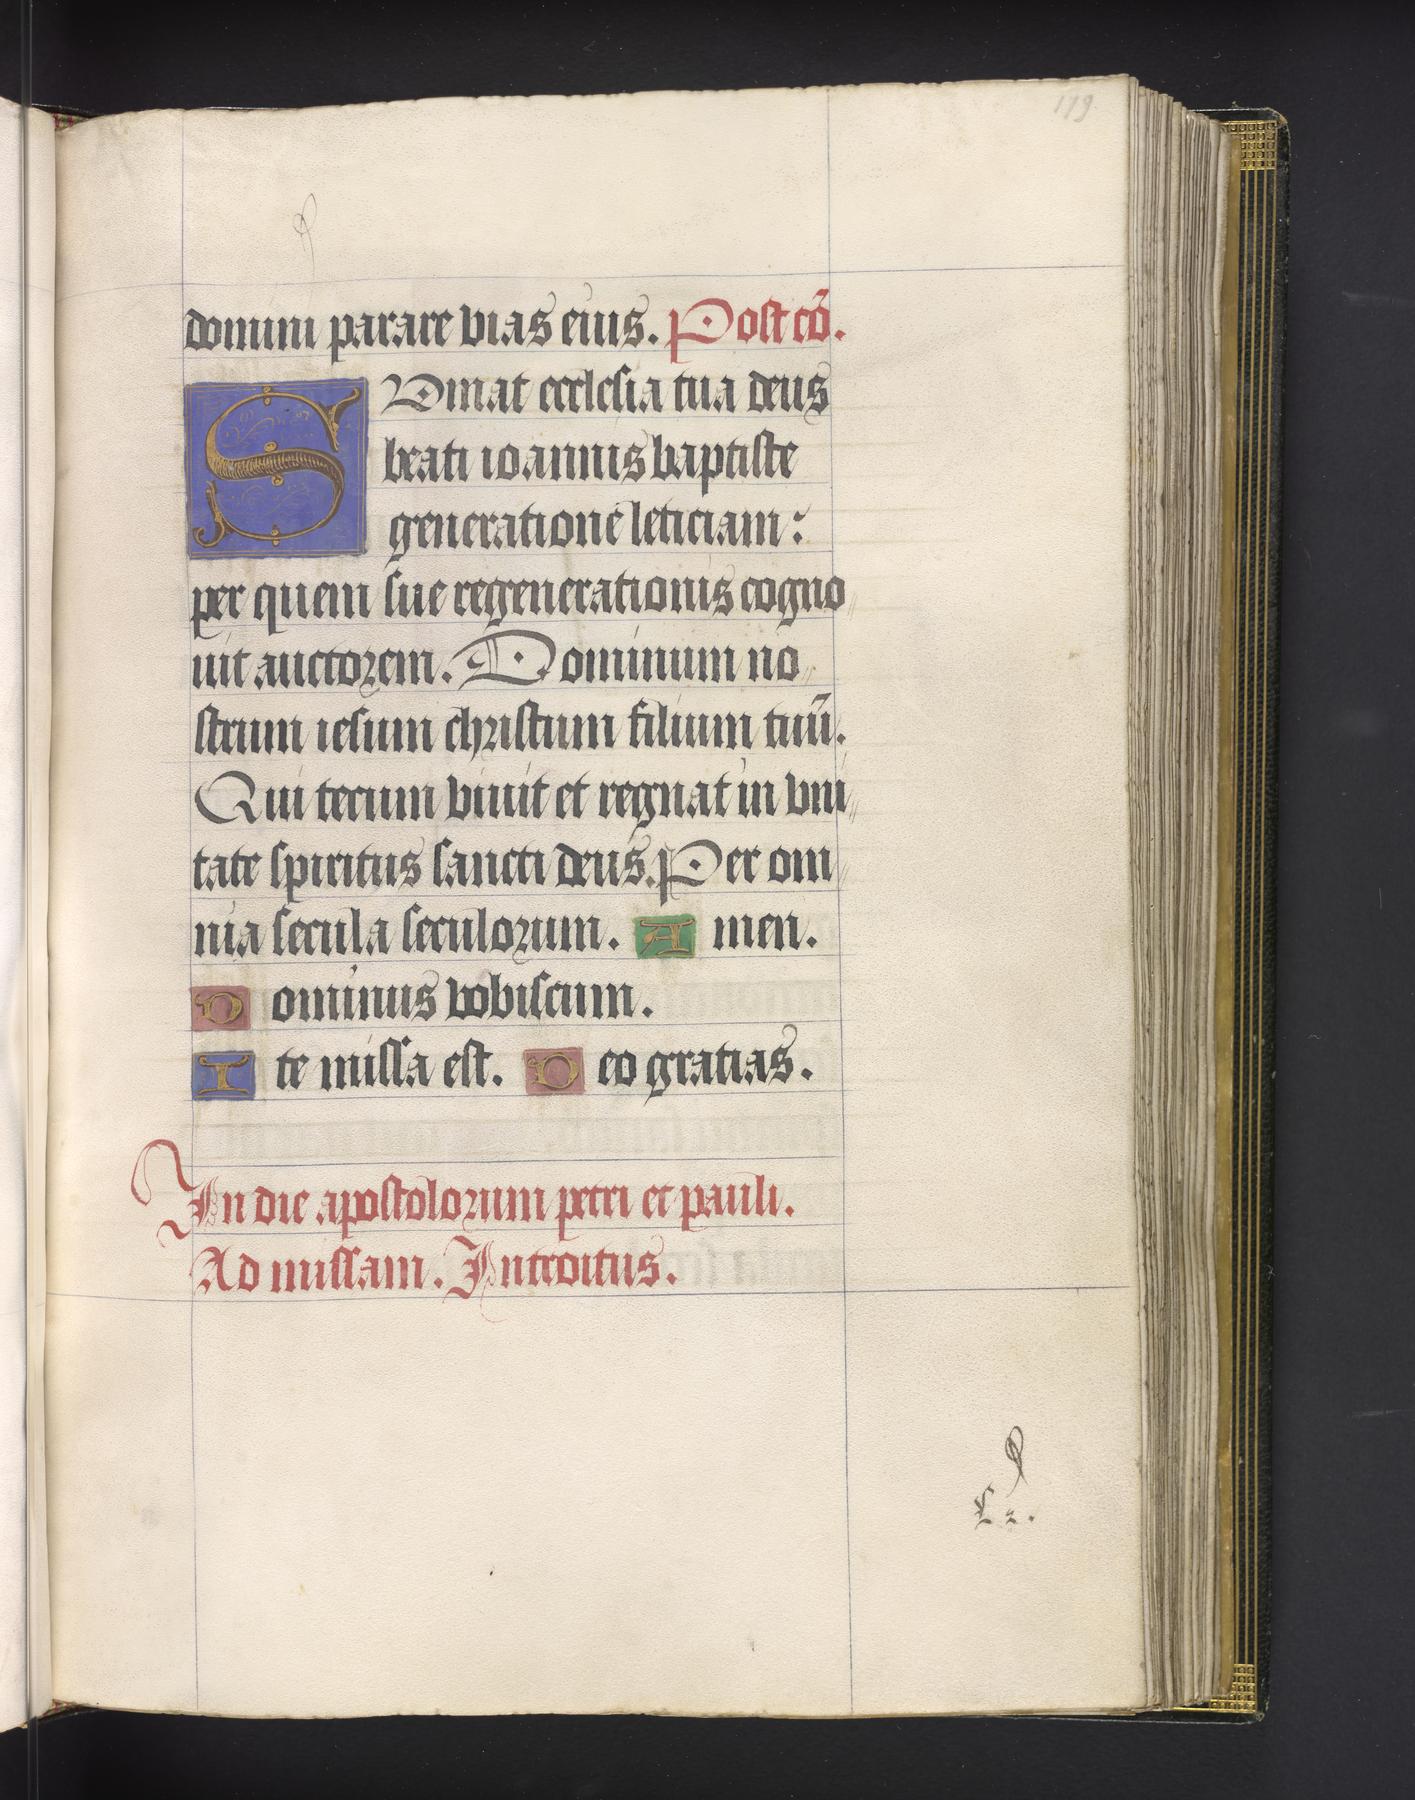 179
domini parare vias eius. Post cō.
SVmat ecclesia tua deus
beati ioannis baptiste
generatione leticiam:
per quem sue regenerationis cogno
uit auctorem. Dominum no
strum iesum christum filium tuū.
Qui tecum viuit et regnat in vni
tate spiritus sancti deus. Per om
nia secula seculorum. Amen.
Dominus vobiscum.
Ite missa est. Deo gratias.
In die apostolorum petri et pauli.
Ad missam. Introitus.